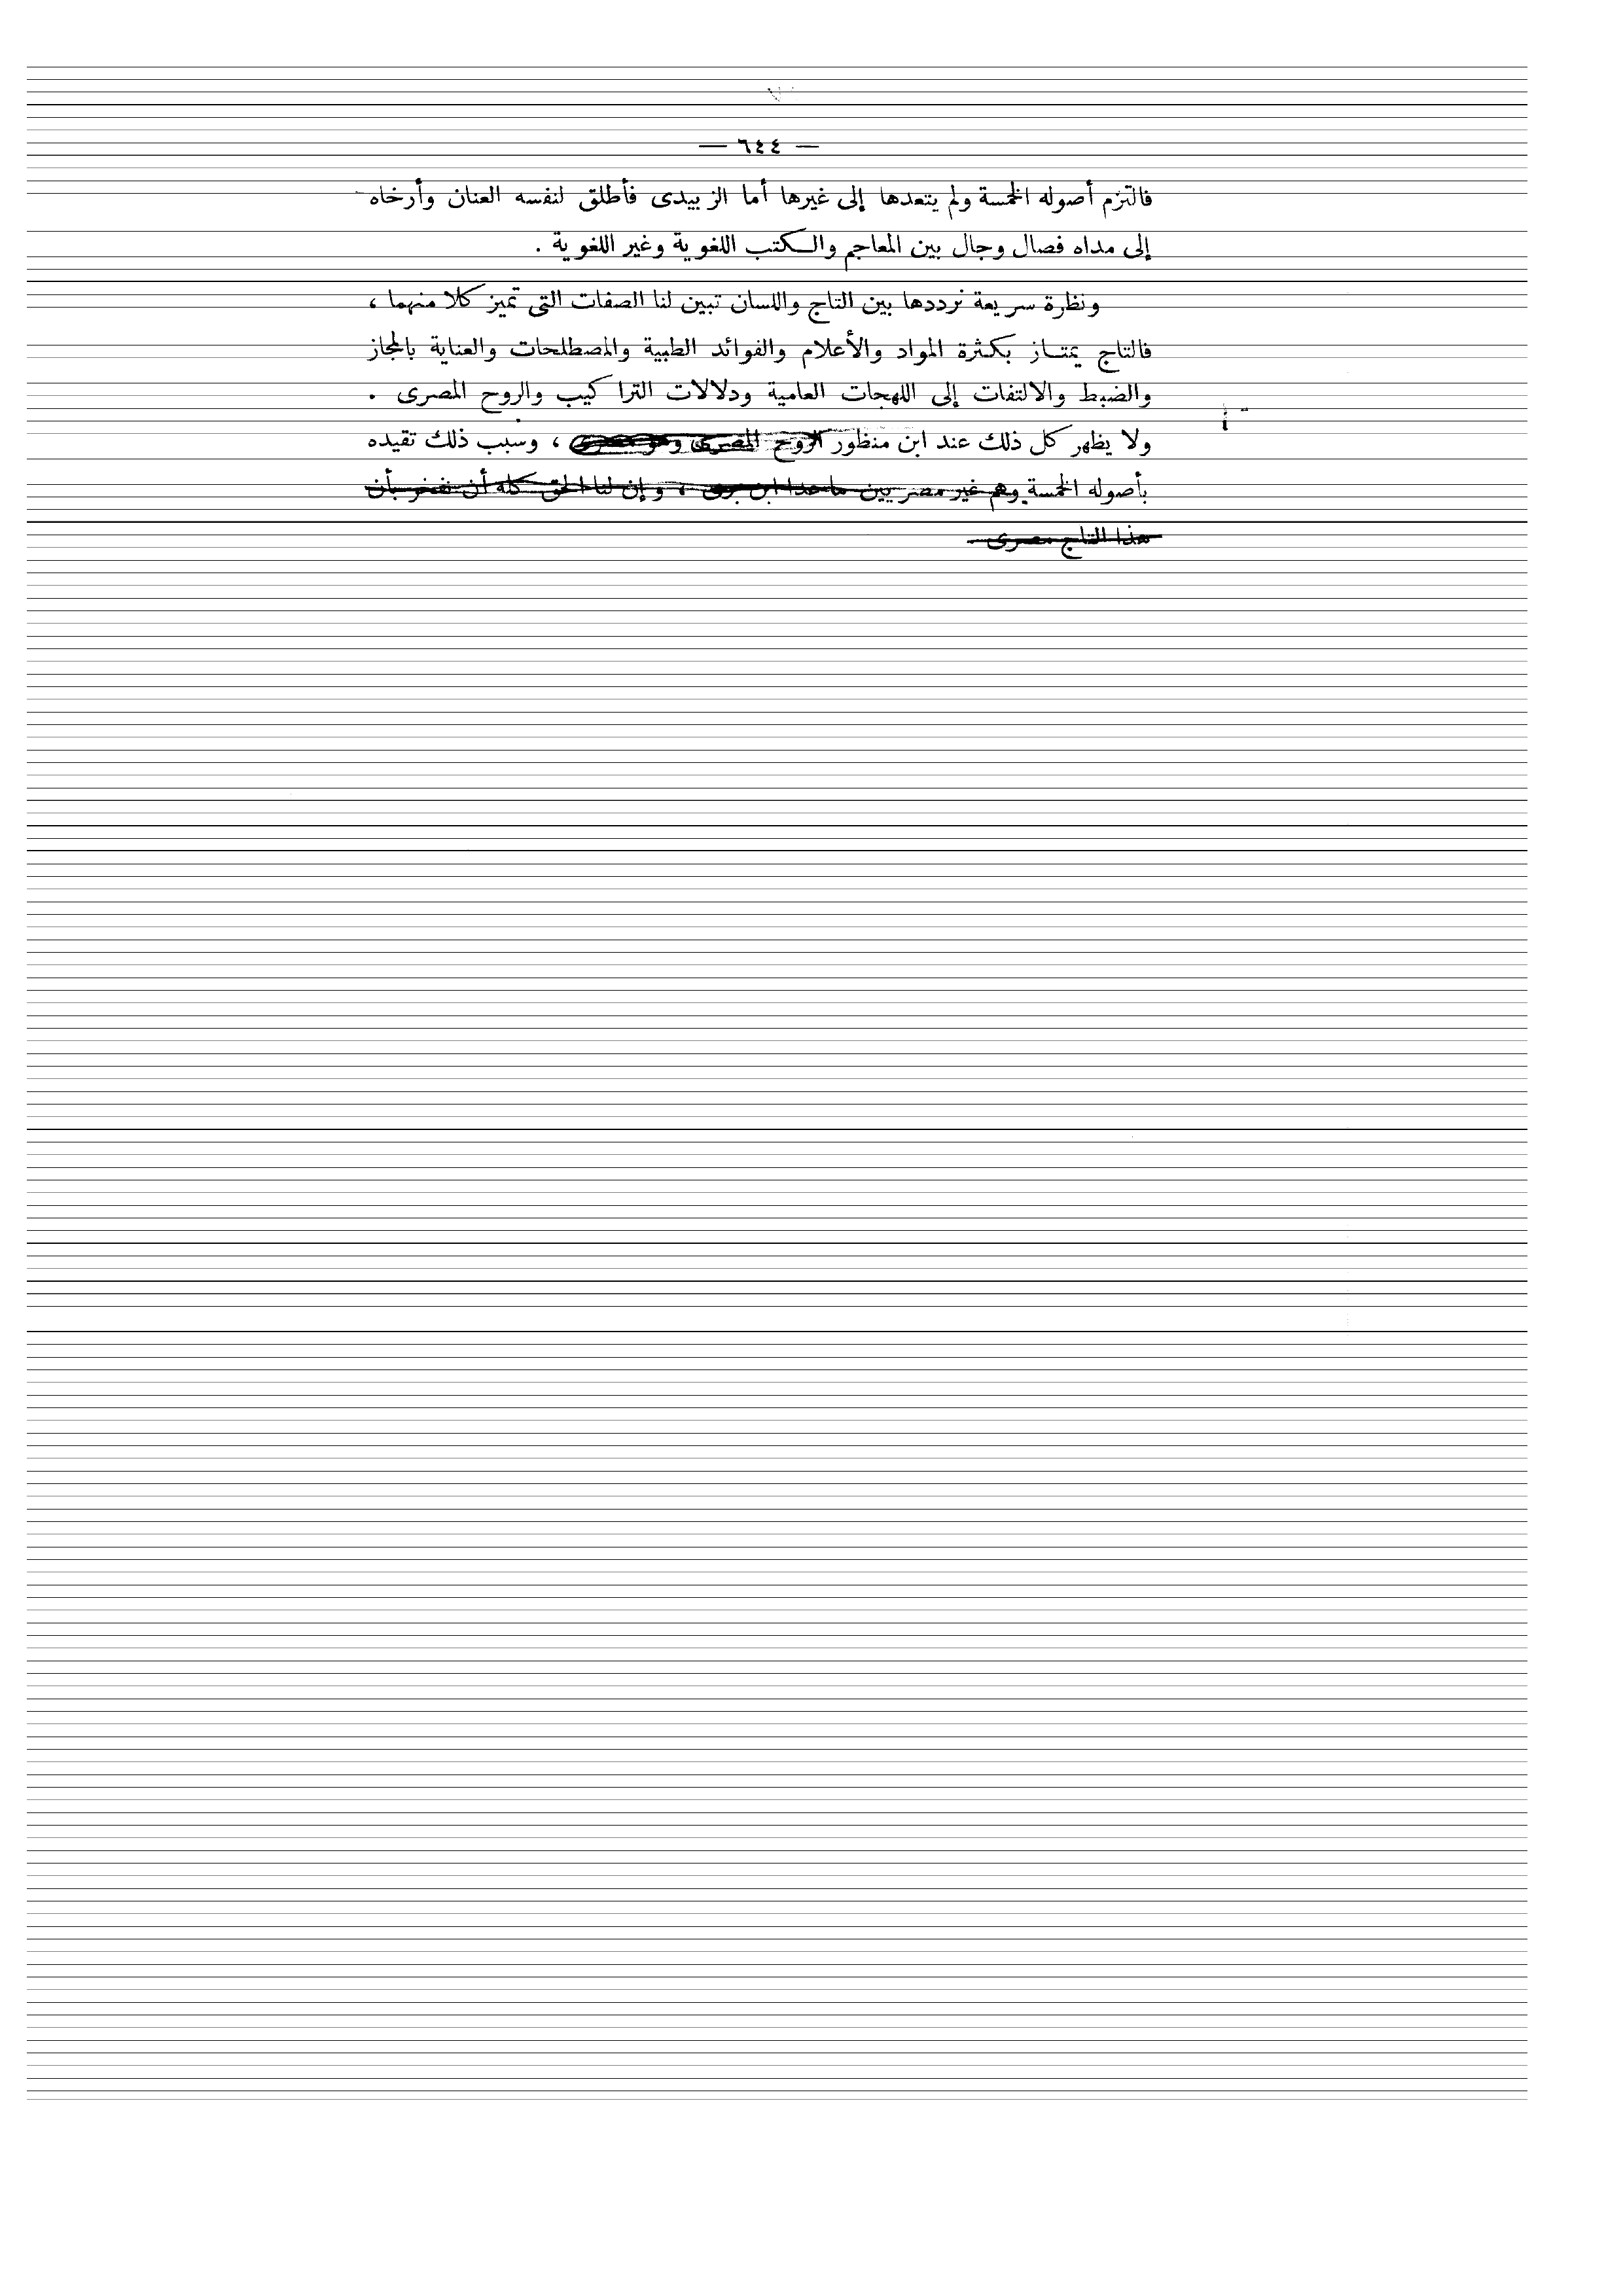 — ٦٤٤ —
فالتزم أصوله الخمسة ولم يتعدها إلى غيرها أما الزبيدى فأطلق لنفسه العنان وأرخاه
إلى مداه فصال وجال بين المعاجم والكتب اللغوية وغير اللغوية .
ونظرة سريعة نرددها بين التاج واللسان تبين لنا الصفات التى تميز كلا منهما ،
فالتاج يمتاز بكثرة المواد والأعلام والفوائد الطبية والمصطلحات والعناية بالمجاز
والضبط والالتفات إلى اللهجات العامية ودلالات التراكيب والروح المصرى .
ولا يظهر كل ذلك عند ابن منظور الروح المصرى وهو مصرى ، وسبب ذلك تقيده
بأصوله الخمسة وهم غير مصريين ما عدا ابن برى ، وإن لنا الحق كله أن نفخر بأن
هذا التاج مصرى .